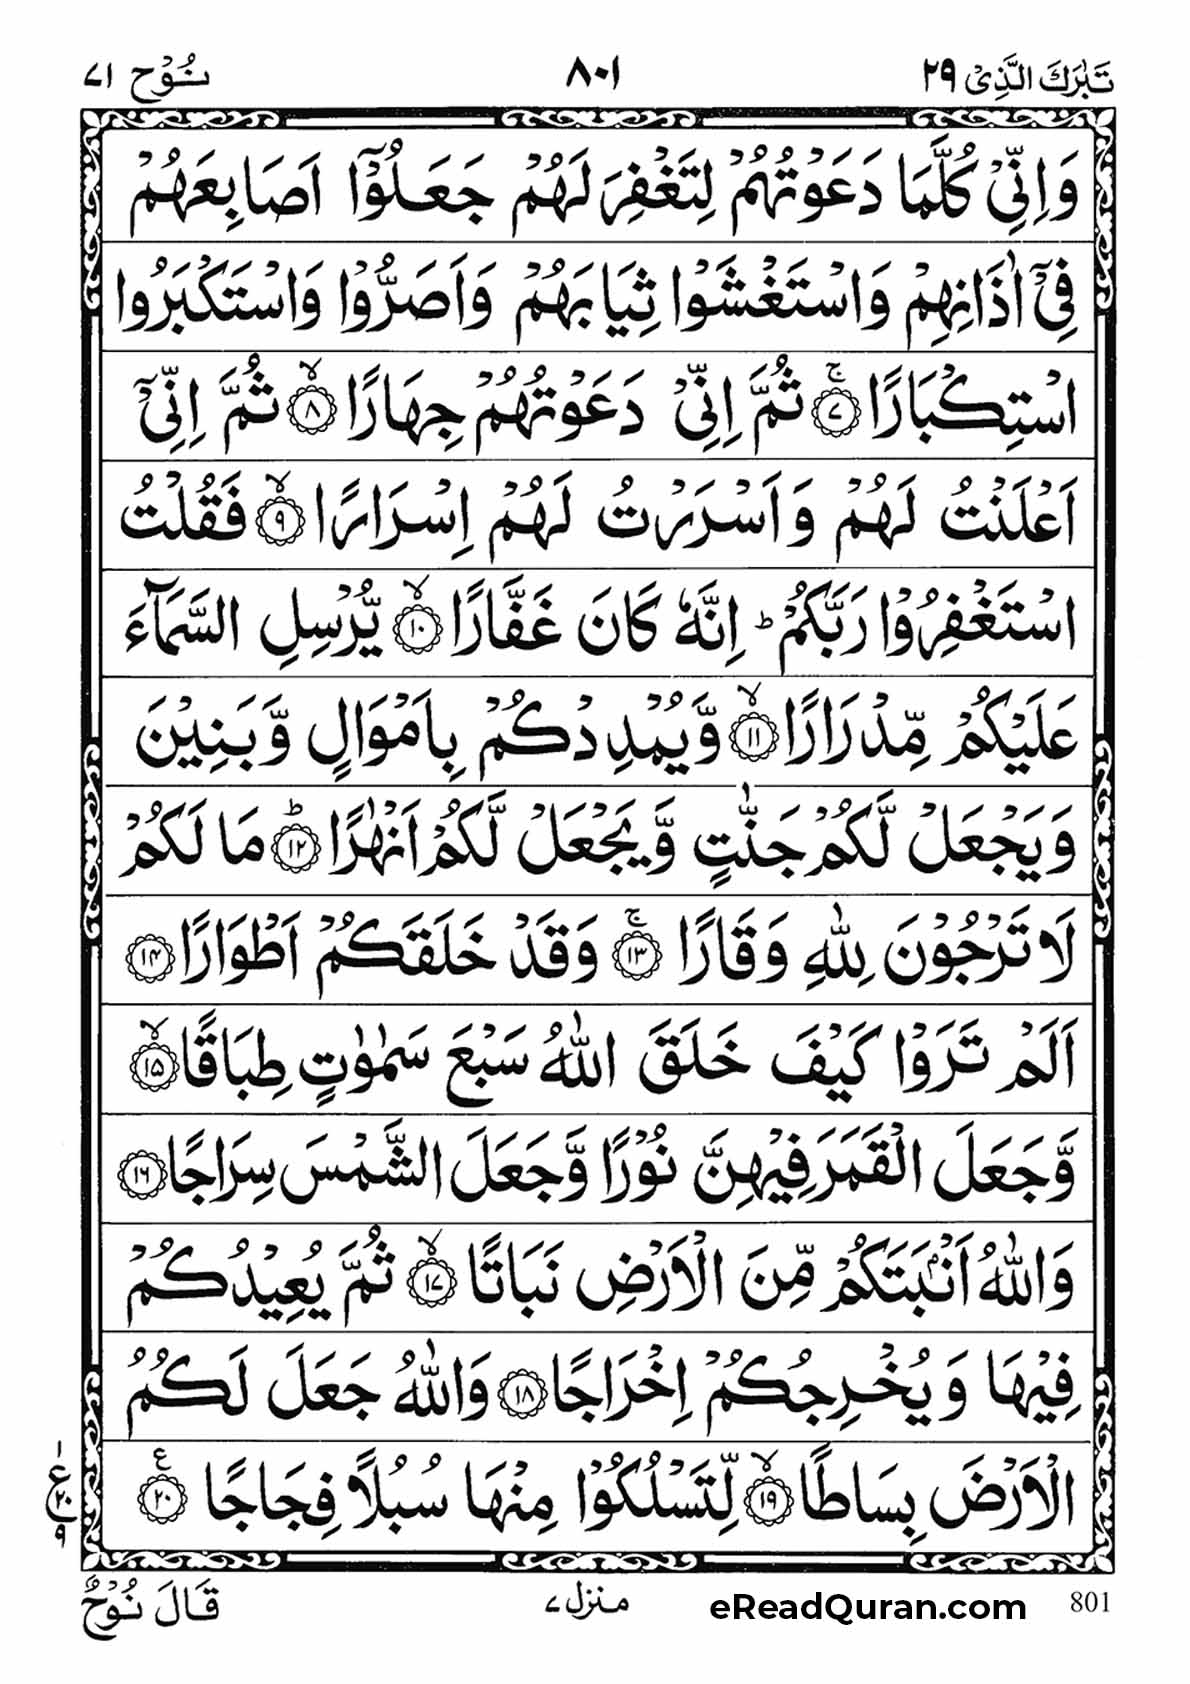 تَبٰرَكَ الَّذِیْ ۲۹ ۸۰۱ نُوْح ۷۱
وَ اِنِّیْ كُلَّمَا دَعَوْتُهُمْ لِتَغْفِرَ لَهُمْ جَعَلُوْۤا اَصَابِعَهُمْ
فِیْۤ اٰذَانِهِمْ وَ اسْتَغْشَوْا ثِیَابَهُمْ وَ اَصَرُّوْا وَ اسْتَكْبَرُوا
اسْتِكْبَارًا ۚ۝۷ ثُمَّ اِنِّیْ دَعَوْتُهُمْ جِهَارًا ۙ۝۸ ثُمَّ اِنِّیْۤ
اَعْلَنْتُ لَهُمْ وَ اَسْرَرْتُ لَهُمْ اِسْرَارًا ۙ۝۹ فَقُلْتُ
اسْتَغْفِرُوْا رَبَّكُمْ ؕ اِنَّهٗ كَانَ غَفَّارًا ۙ۝۱۰ یُّرْسِلِ السَّمَآءَ
عَلَیْكُمْ مِّدْرَارًا ۙ۝۱۱ وَّ یُمْدِدْكُمْ بِاَمْوَالٍ وَّ بَنِیْنَ
وَ یَجْعَلْ لَّكُمْ جَنّٰتٍ وَّ یَجْعَلْ لَّكُمْ اَنْهٰرًا ؕ۝۱۲ مَا لَكُمْ
لَا تَرْجُوْنَ لِلّٰهِ وَقَارًا ۚ۝۱۳ وَ قَدْ خَلَقَكُمْ اَطْوَارًا ۝۱۴
اَلَمْ تَرَوْا كَیْفَ خَلَقَ اللّٰهُ سَبْعَ سَمٰوٰتٍ طِبَاقًا ۙ۝۱۵
وَّ جَعَلَ الْقَمَرَ فِیْهِنَّ نُوْرًا وَّ جَعَلَ الشَّمْسَ سِرَاجًا ۝۱۶
وَ اللّٰهُ اَنْۢبَتَكُمْ مِّنَ الْاَرْضِ نَبَاتًا ۙ۝۱۷ ثُمَّ یُعِیْدُكُمْ
فِیْهَا وَ یُخْرِجُكُمْ اِخْرَاجًا ۝۱۸ وَ اللّٰهُ جَعَلَ لَكُمُ
الْاَرْضَ بِسَاطًا ۙ۝۱۹ لِّتَسْلُكُوْا مِنْهَا سُبُلًا فِجَاجًا ۝۲۰ ع
۱
ع ۲۰
۹
801 eReadQuran.com منزل ۷ قَالَ نُوْحٌ